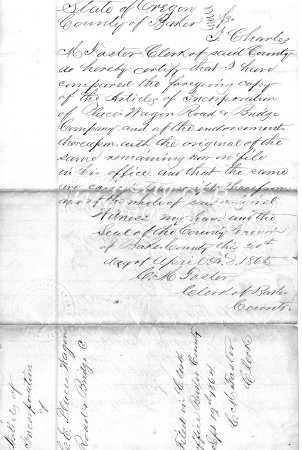 State of Oregon
County of Baker } ss.
I, Charles
M Foster Clerk of said County
do hereby certify that I have
compared the foregoing copy
of the Articles of Incorporation
of Places Wagon Road & Bridge
Company and of the endorsements
thereupon with the original of the
same remaining now on file
in his office and that the same
are correct therefrom
and of the whole of said original
Witness my hand and the
Seal of the County Court
of Baker County this 20th
day of April A.D. 1865
C. M. Foster
Clerk of Baker
County
Articles of
Incorporation
of
Places Wagon
Road & Bridge C
Filed in Clerks
office Baker County
Sept 19th 1864
C M Foster
Clerk